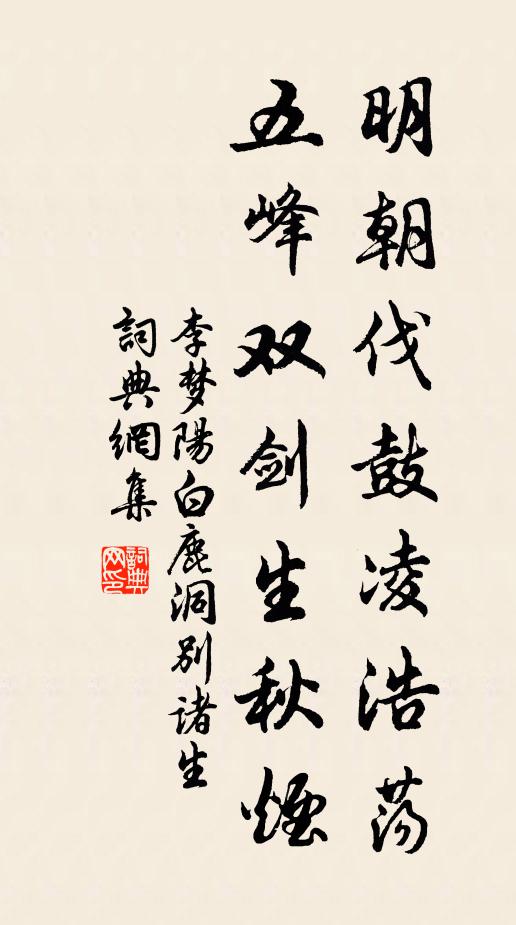 明朝伐鼓凌浩荡
五峰双剑生秋烟
李梦陽白鹿洞别诸生
詞典網集
詞典网印